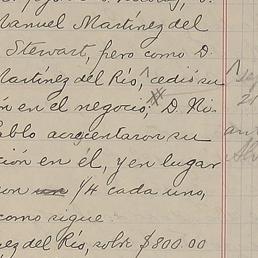 Manuel Martínez del
Stewart, pero como D.
Martínez del Río, cedió su
ón en el negocio, D. Ni-
ablo acrecentaron su
ción en él, y en lugar
on un 1/4 cada uno,
como sigue
nez del Río, sobre $800.00